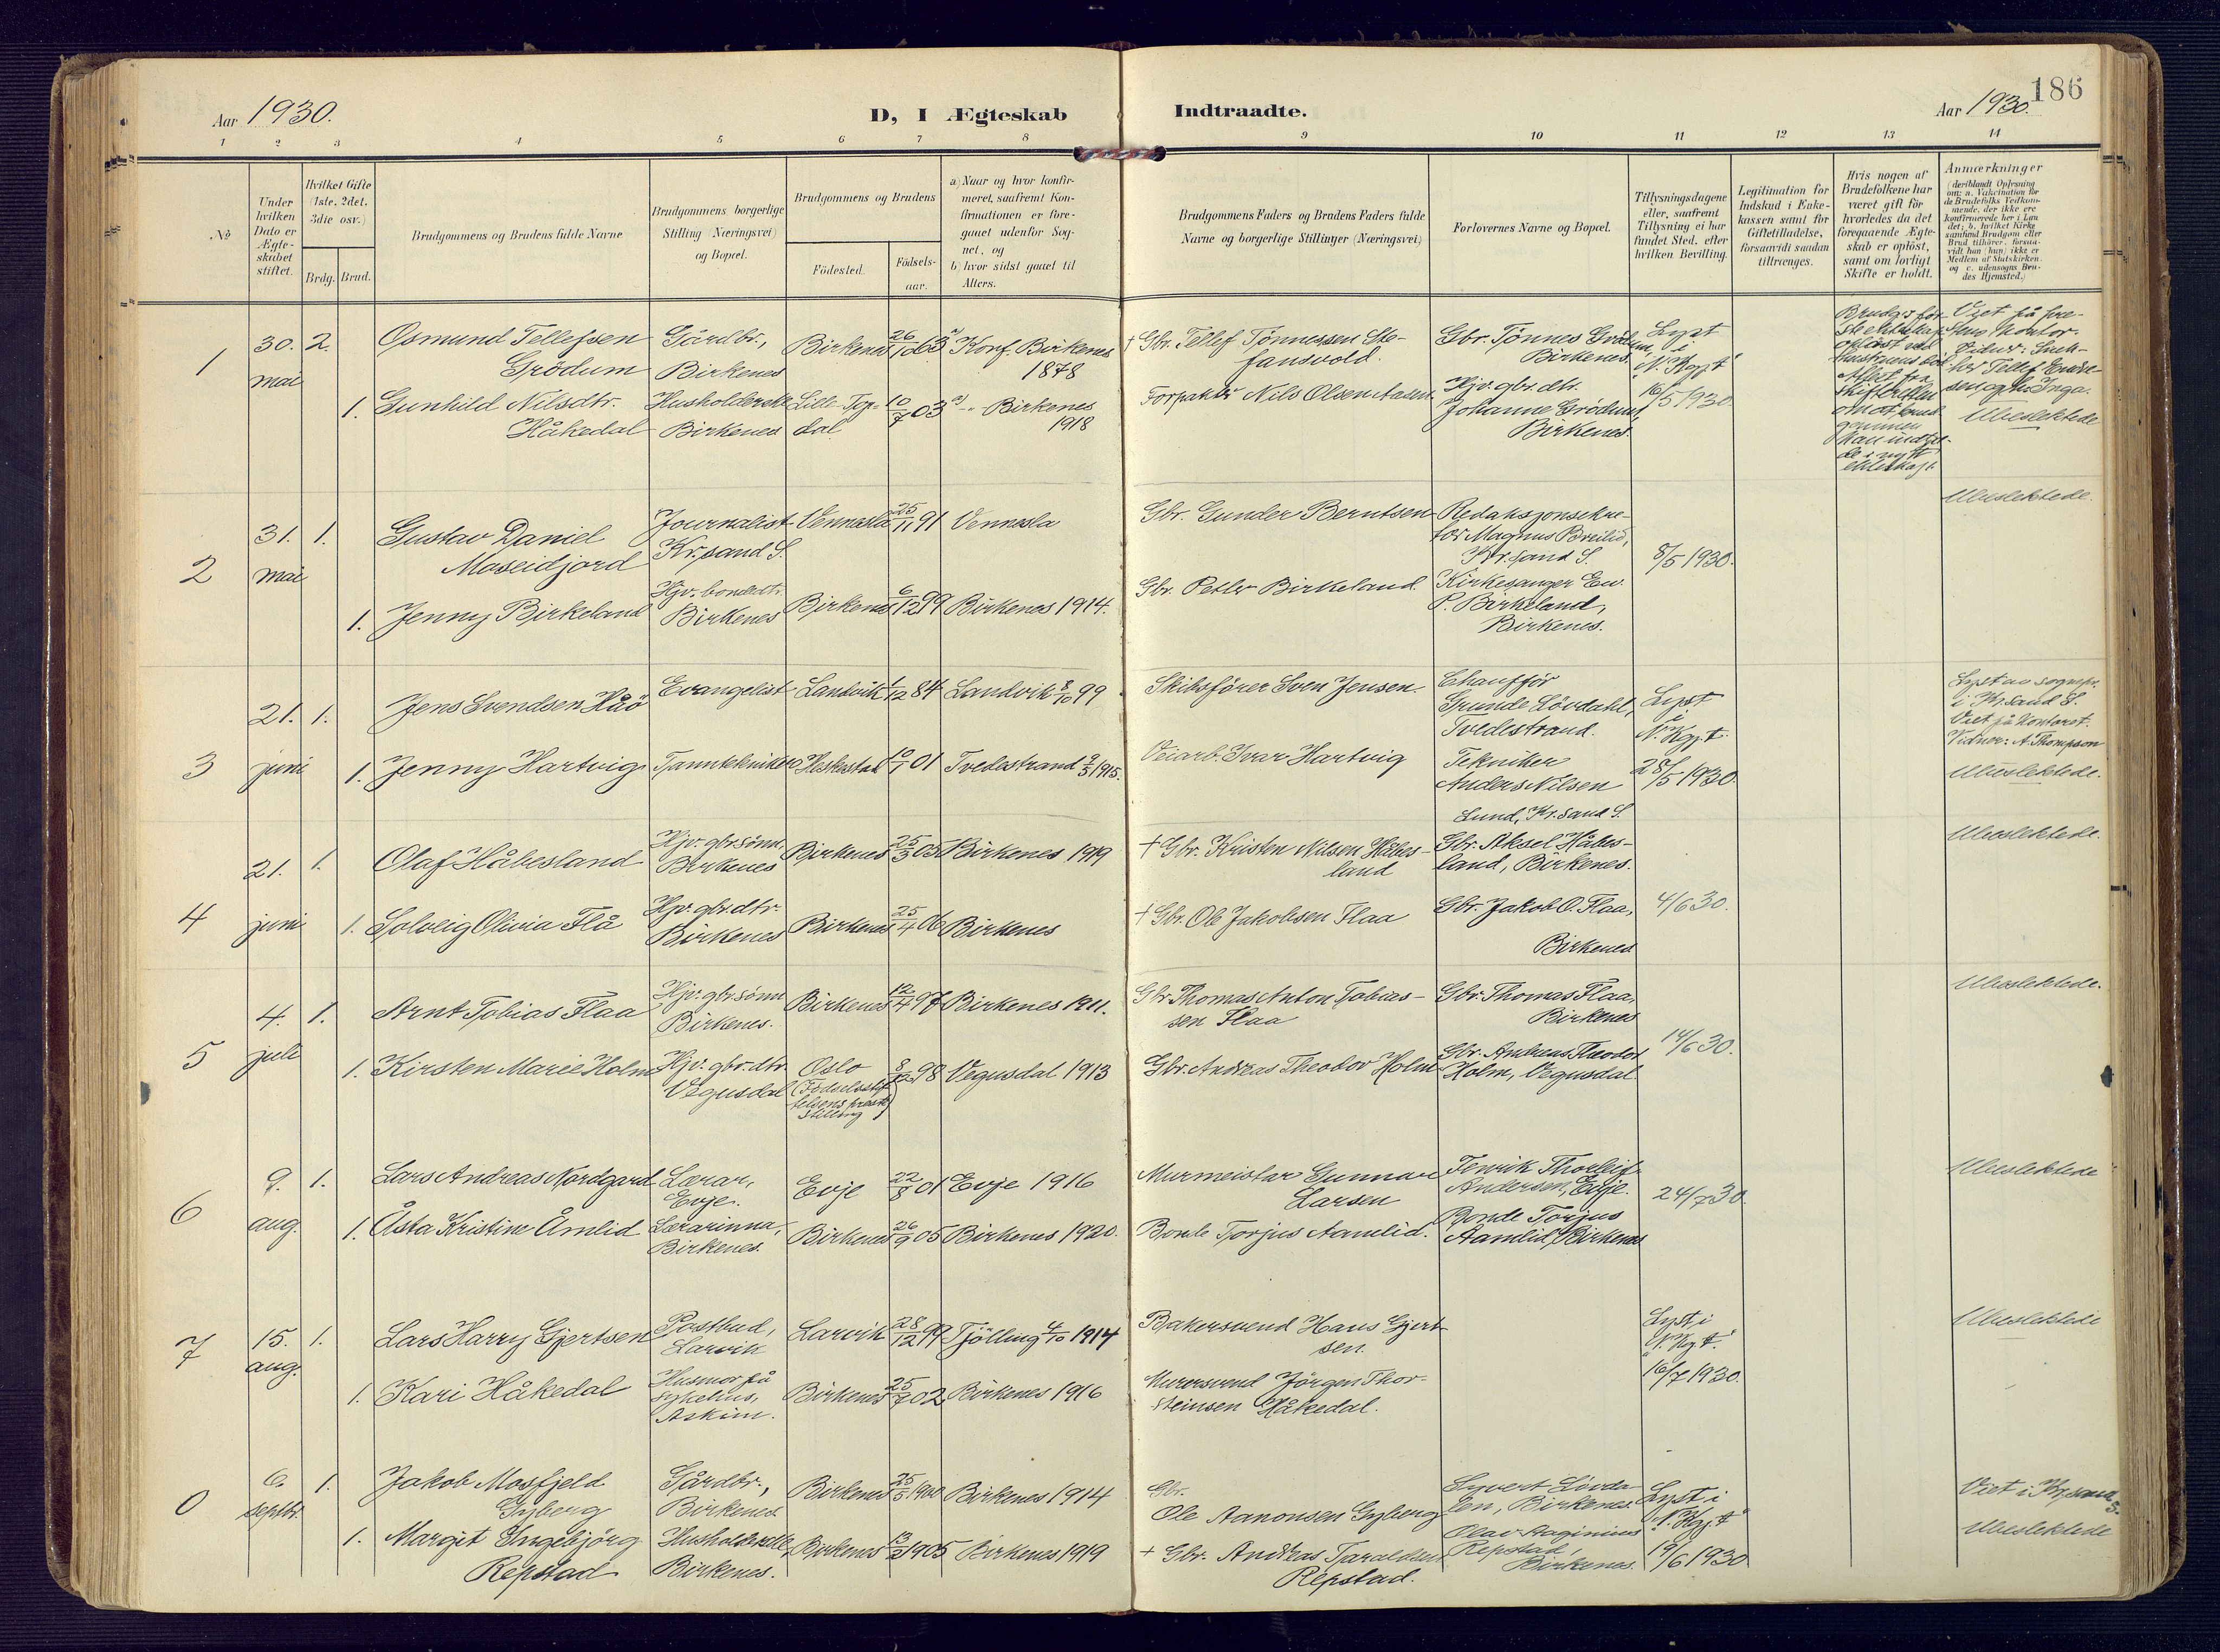 186
Aar 1930.
D, I Ægteskab Indtraadte.
Aar 1930.
1 2 3 4 5 6 7 8 9 10 11 12 13 14
№
Under
hvilken
Dato er
Ægte-
skabet
stiftet.
Hvilket Gifte
(1ste, 2det,
3die osv.)
Brdg. Brud.
Brudgommens og Brudens fulde Navne
Brudgommens borgerlige
Stilling (Næringsvei)
og Bopæl.
Brudgommens og Brudens
Fødested.
Fødsels-
aar.
a) Naar og hvor konfir-
meret, saafremt Kon-
firmationen er fore-
gaaet udenfor Sog-
net, og
b) hvor sidst gaaet til
Alters.
Brudgommens Faders og Brudens Faders fulde
Navne og borgerlige Stillinger (Næringsvei)
Forlovernes Navne og Bopæl.
Tillysningsdagene
eller, saafremt
Tillysning ei har
fundet Sted, efter
hvilken Bevilling.
Legitimation for
Indskud i Enke-
kassen samt for
Giftetilladelse,
forsaavidt saadan
tiltrænges.
Hvis nogen af
Brudefolkene har
været gift før
hvorledes da det
foregaaende Ægte-
skab er opløst,
samt om lovligt
Skifte er holdt.
Anmærkninger
(deriblandt Oplysning
om: a. Vakcination for
de Brudefolks Vedkom-
mende, der ikke ere
konfirmerede her i Lan
det; b. hvilket Kirke
samfund Brudgom eller
Brud tilhører, forsaa-
vidt han (hun) ikke er
Medlem af Statskirken,
og c. udensogns Bru-
des Hjemsted.)
1
30.
mai
2.
Osmund Tellefsen
Grödum
Gårdbr.,
Birkenes
Birkenes
26/10 63
a) Konf. Birkenes
1878
† Gbr. Tellef Tönnessen Ste-
fansvold.
Gbr. Tönnes Grödum,
Birkenes.
Lyst
i
"N. Kgj.t"
16/5 1930
Brudg.s för-
ste ekteskap
oplöst ved
hustruens död
Attest fra
skifteretten
om at brud-
gommen
kan indtræ-
de i nytt
ekteskap.
Viet på pre-
stens kontor.
Vidner: Snek-
ker Tellef
og Inga.
Ubeslektede
1. Gunhild Nilsdtr.
Håkedal
Husholderske
Birkenes
Lille-Top-
dal
10/7 03
a) -"- Birkenes
1918
Forpakter Nils Olsen
Hjv. gbr.dtr.
Johanne Grödum,
Birkenes.
2
31.
mai
1.
Gustav Daniel
Moseidjord
Journalist
Kr.sand S.
Vennesla
25/11 91
Vennesla
Gbr. Gunder Berntsen
Redaksjonsekre-
tær Magnus Breilid,
Kr.sand S.
8/5 1930.
Ubeslektede.
1. Jenny Birkeland
Hjv. bondedtr.
Birkenes
Birkenes
6/12 99
Birkenes 1914.
Gbr. Petter Birkeland.
Kirkesanger Ew.
P. Birkeland,
Birkenes.
3
21.
juni
1.
Jens Svendsen Håö
Evangelist
Landvik
1/12 84
Landvik 8/10 99
Skibsförer Sven Jensen.
Chauffför
Grunde Lövdahl,
Tvedestrand.
Lyst
i
N. Kgj.t.
28/5 1930.
Lyst av sognepr.
i Kr.sand S.
Viet på kontoret.
Vidner: A. Thompson
Ubeslektede.
1. Jenny Hartvig
Tanntekniker
Heskestad
10/1 01
Tvedestrand 2/5 1915.
Veiarb. Ivar Hartvig
Tekniker
Anders Nilsen
Lund, Kr.sand S.
4
21.
juni
1.
Olaf Håbesland
Hjv. gbr.sönn
Birkenes
Birkenes
25/3 05
Birkenes 1919
† Gbr. Kristen Nilsen Håbes-
land
Gbr. Aksel Håbes-
land, Birkenes.
4/6 30.
Ubeslektede.
1. Solveig Olivia Flå
Hjv. gbr.dtr.
Birkenes
Birkenes
25/4 06
Birkenes
† Gbr. Ole Jakobsen Flaa
Gbr. Jakob O. Flaa,
Birkenes
5
4.
juli
1.
Arnt Tobias Flaa
Hjv. gbr.sönn
Birkenes.
Birkenes
12/4 97
Birkenes 1911.
Gbr. Thomas Anton Tobias-
sen Flaa
Gbr. Thomas Flaa,
Birkenes
14/6 30.
Ubeslektede.
1. Kirsten Marie Holm
Hjv. gbr.dtr.
Vegusdal
Oslo
(Födselsstif-
telsens prest-
stilling)
8/12 98
Vegusdal 1913
Gbr. Andreas Theodor Holm
Gbr. Andreas Theodor
Holm, Vegusdal
6
9.
aug.
1.
Lars Andreas Nordgard
Lærar,
Evje.
Evje
22/8 01
Evje 1916
Murmeistar Gunnar
Larsen
Fenrik Thorleif
Andersen, Evje.
24/7 30
Ubeslektede
1. Åsta Kristine Åmlid
Lærarinna,
Birkenes.
Birkenes
26/9 05
Birkenes 1920.
Bonde Torjus Aamlid.
Bonde Torjus
Aamlid, Birkenes
7
15.
aug.
1.
Lars Harry Gjertsen
Postbud,
Larvik
Larvik
28/12 99
Tjölling 4/10 1914
Bakersvend Hans Gjert-
sen.
Lyst i
"N. Kgj.t."
16/7 1930.
Ubeslektede
1. Kari Håkedal
Husmor på
sykehus,
Askim.
Birkenes
25/7 02
Birkenes 1916
Murersvend Jörgen Thor-
steinsen Håkedal.
0
6
septbr.
1.
Jakob Mosfjeld
Gyberg
Gårdbr.,
Birkenes
Birkenes
25/5 1900
Birkenes 1914
Gbr.
Ole Aanonsen Gyberg
Syvert Lövda-
len, Birkenes.
Lyst i
"N. Kgj.t"
19/6 1930
Viet i Kr.sand
S.
Ubeslektede
1. Margit Ingebjörg
Repstad
Husholderske,
Birkenes.
Birkenes
12/2 1905
Birkenes 1919
† Gbr. Andreas Taraldsen
Repstad.
Olav Aaginius
Repstad,
Birkenes.